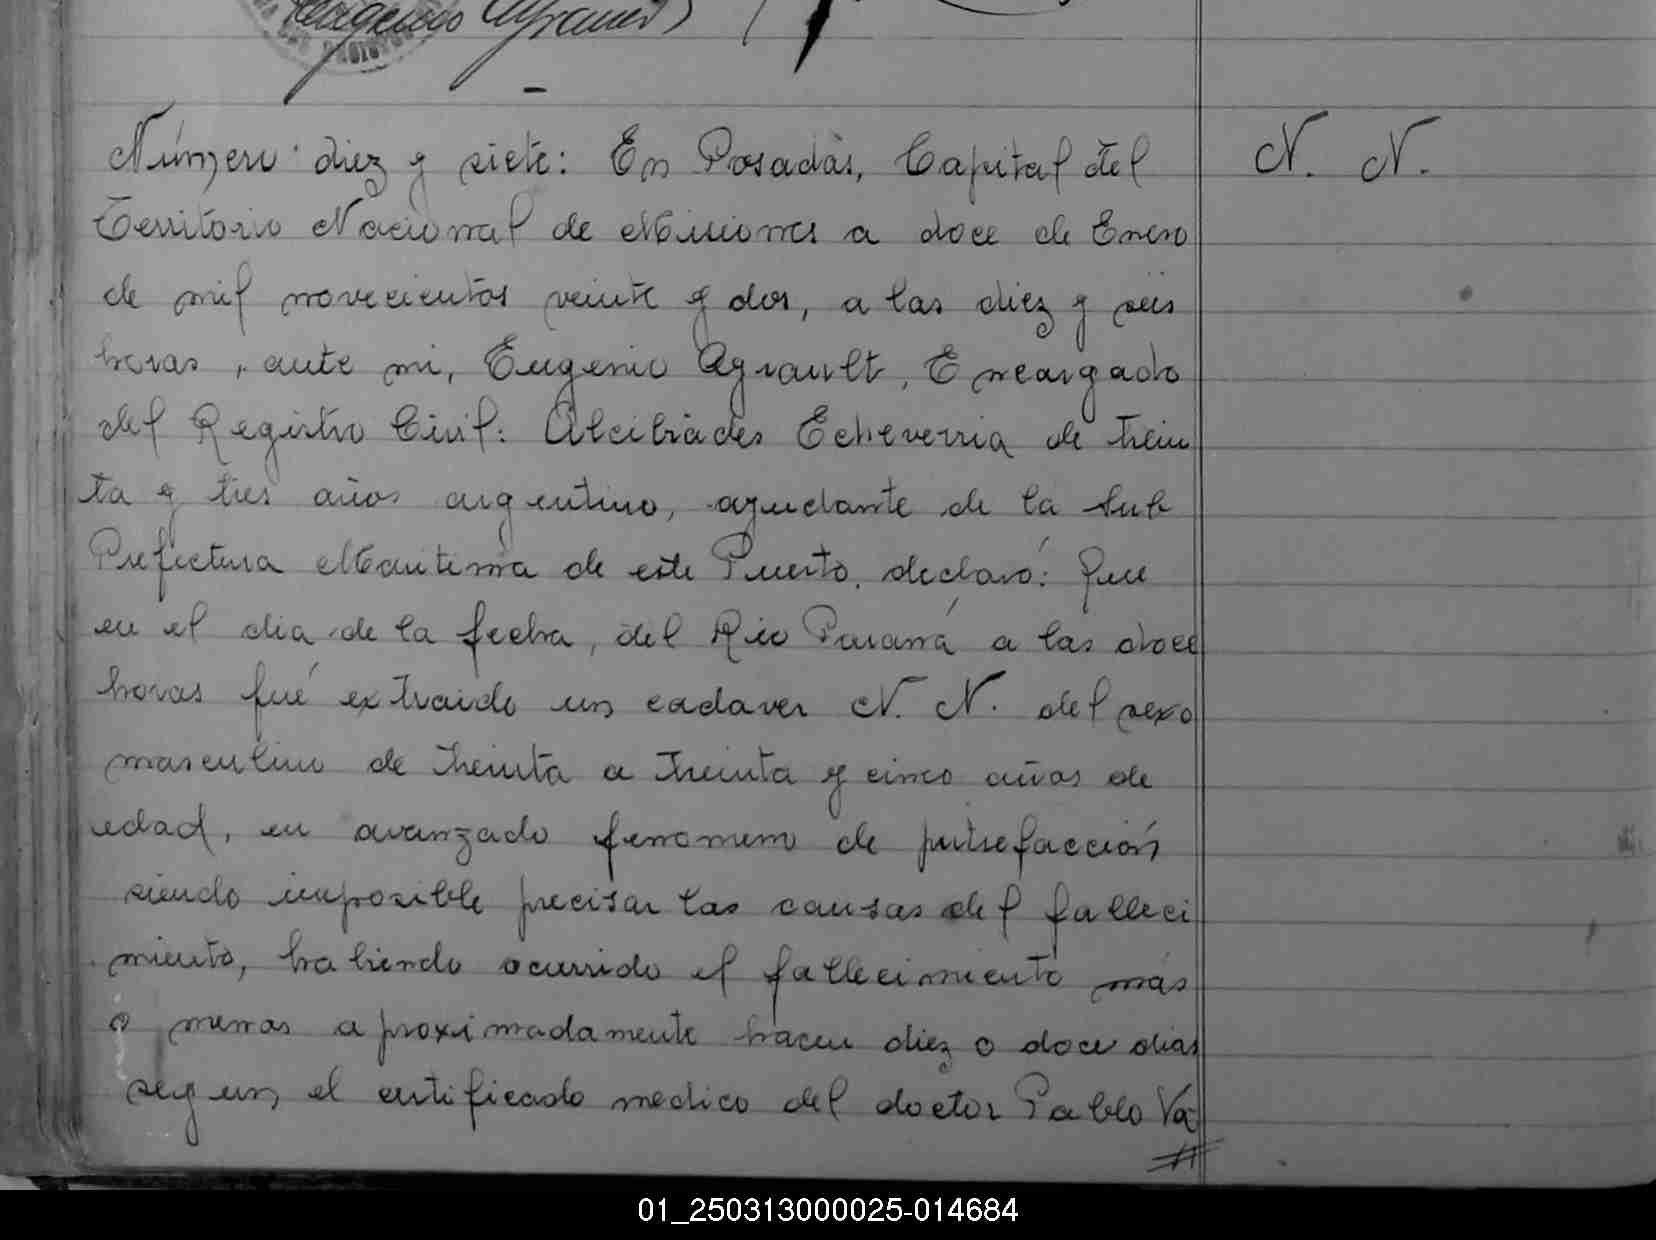 Número diez y siete: En Posadas, Capital del
N. N.
Territorio Nacional de Misiones a doce de Enero
de mil novecientos veinte y dos, a las diez y seis
horas, ante mi, Eugenio Ayrault, Encargado
del Registro Civil: Alcibiades Echeverria de trein
ta y tres años argentino, ayudante de la Sub
Prefectura Maritima de este Puerto, declaró: Que
en el dia de la fecha, del Rio Paraná a las doce
horas fué extraido un cadaver N. N. del sexo
masculino de treinta a treinta y cinco años de
edad, en avanzado fenomeno de putrefacción
siendo imposible precisar las causas del falleci
miento, habiendo ocurrido el fallecimiento más
o menos aproximadamente hacen diez o doce dias
segun el certificado medico del doctor Pablo Va
01_250313000025-014684